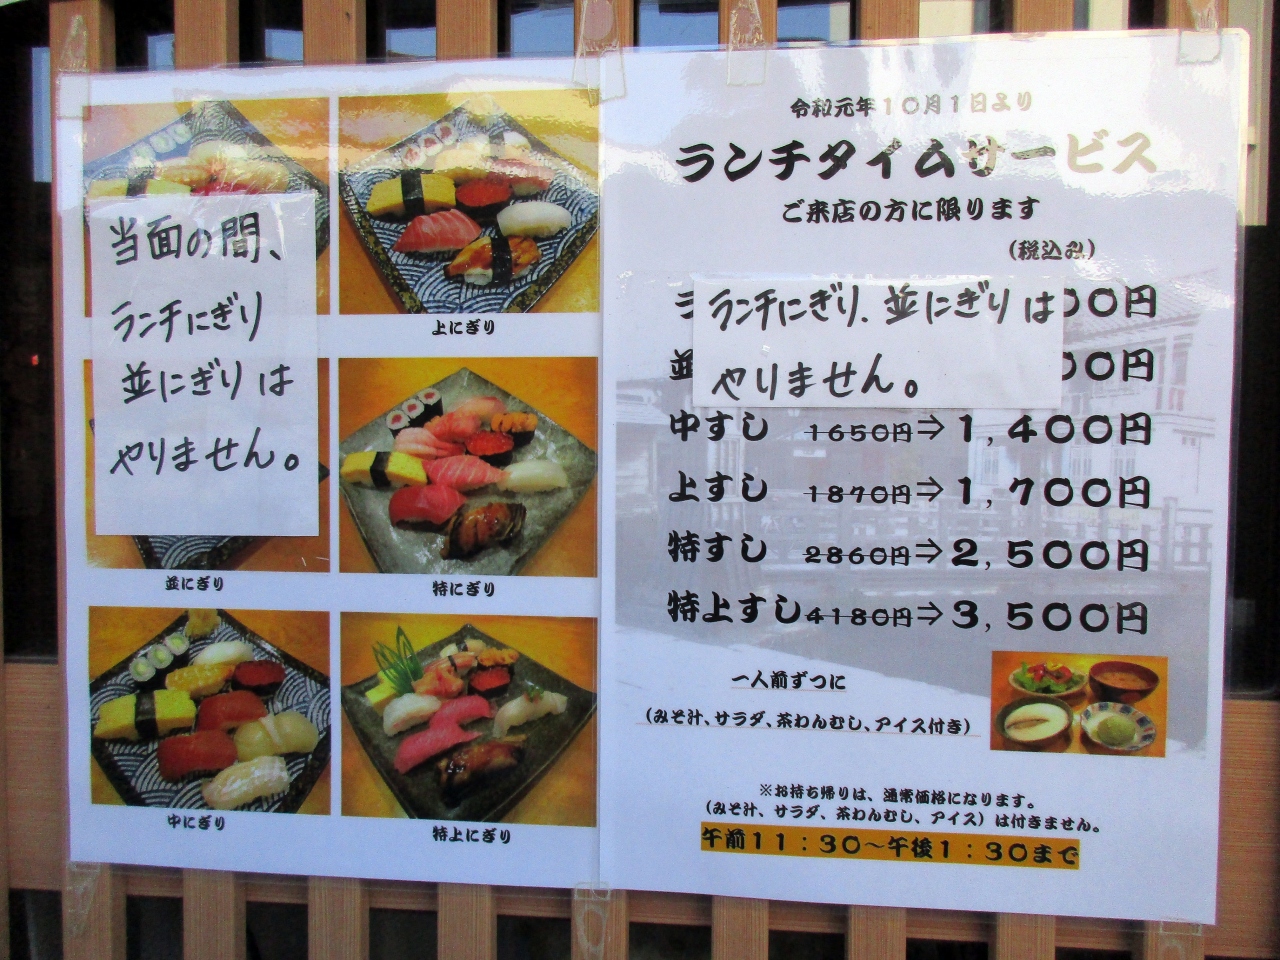 当面の間、
ランチにぎり
並にぎりは
やりません。
上にぎり
並にぎり
特にぎり
中にぎり
特上にぎり
令和元年10月1日より
ランチタイムサービス
ご来店の方に限ります
(税込み)
ランチにぎり、並にぎりは
やりません。
ラ 00円
並 00円
中すし 1650円⇒1,400円
上すし 1870円⇒1,700円
特すし 2860円⇒2,500円
特上すし4180円⇒3,500円
一人前ずつに
(みそ汁、サラダ、茶わんむし、アイス付き)
※お持ち帰りは、通常価格になります。
(みそ汁、サラダ、茶わんむし、アイス)は付きません。
午前11:30～午後1:30まで